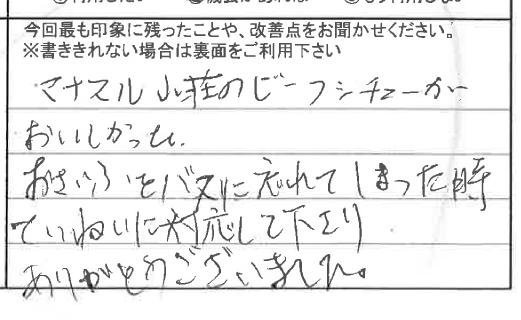 今回最も印象に残ったことや、改善点をお聞かせください。
※書ききれない場合は裏面をご利用下さい
マナスル山荘のビーフシチューが
おいしかった。
おさいふをバスに忘れてしまった時
ていねいに対応して下さり
ありがとうございました。